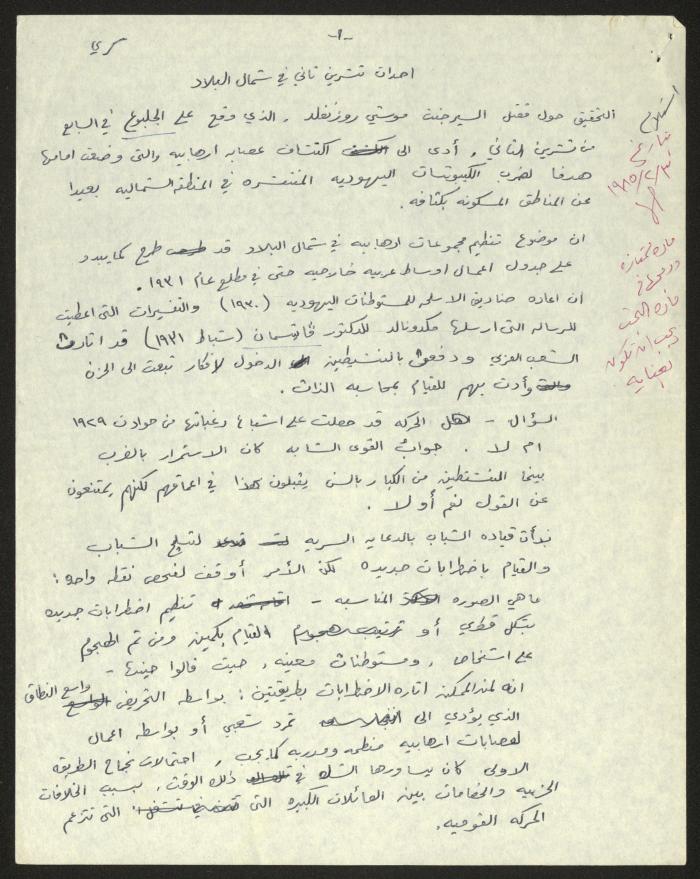 -١-
سري
احداث تشرين ثاني في شمال البلاد
التحقيق حول مقتل السيرجنت موشي روزنفلد ، الذي وقع على الجلبوع في السابع
من تشرين الثاني ، أدى الى اكتشاف عصابه ارهابيه والتي وضعت امامها
هدفا لضرب الكيبوتسات اليهوديه المنتشره في المنطقه الشماليه بعيدا
عن المناطق المسكونه بكثافه .
ان موضوع تنظيم مجموعات ارهابيه في شمال البلاد قد طرح كما يبدو
على جدول اعمال اوساط عربيه خارجيه حتى في مطلع عام ١٩٣١ .
ان اعاده صناديق الاسلحه للمستوطنات اليهوديه (١٩٣٠) والتفسيرات التي اعطيت
للرساله التي ارسلها مكدونالد للدكتور ڤايتسمان (شباط ١٩٣١) قد اثارت
الشعب العربي ودفعت بالنشيطين الدخول لافكار تبعث الى الحزن
وأدت بهم للقيام بمحاسبه الذات .
السؤال - هل الحركه قد حصلت على اشباع رغباتها من حوادث ١٩٢٩
ام لا . جواب القوى الشابه كان الاستمرار بالضرب
بينما المتنشطين من الكبار بالسن يقبلون هذا في اعماقهم لكنهم يمتنعون
عن القول نعم أو لا .
بدأت قياده الشباب بالدعايه السريه لتسليح الشباب
والقيام باضطرابات جديده لكن الأمر أوقف لفحص نقطه واحده :
ما هي الصوره المناسبه - تنظيم اضطرابات جديده
بشكل قطري أو القيام بكمين ومن ثم الهجوم
على اشخاص ، ومستوطنات معينه ، حيث قالوا حينها -
انه لمن الممكن اثاره الاضطرابات بطريقتين : بواسطه التحريض واسع النطاق
الذي يؤدي الى تمرد شعبي أو بواسطه اعمال
لعصابات ارهابيه منظمه ومدربه كما يجب ، احتمالات نجاح الطريقه
الاولى كان يساورها الشك في ذلك الوقت ، بسبب الخلافات
الحزبيه والخصامات بين العائلات الكبيره التي تتزعم
الحركه القوميه .
استلام
بتاريخ
ماده ممتازه
يجب ان تكون
بعنايه